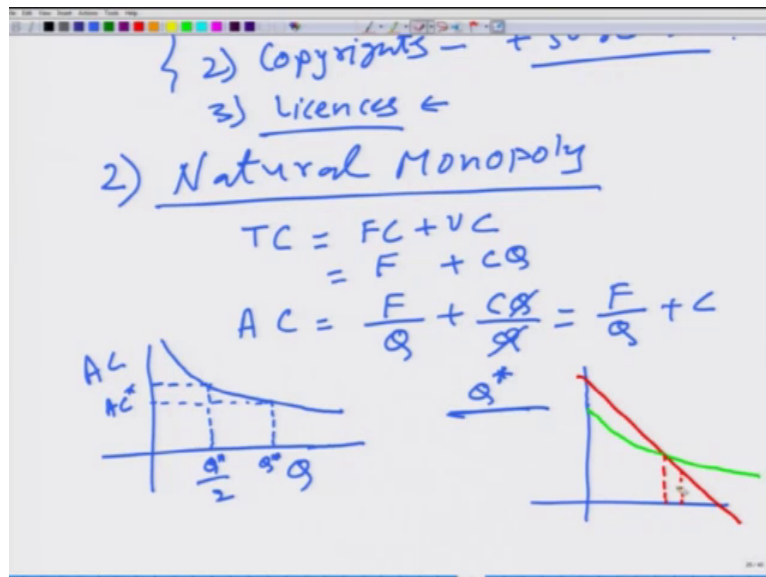 2) Copyrights –
3) Licences ←
2) Natural Monopoly
TC = FC + VC
= F + CQ
AC = F/Q + CQ/Q = F/Q + C
AC
AC*
Q*/2 Q* Q
Q*